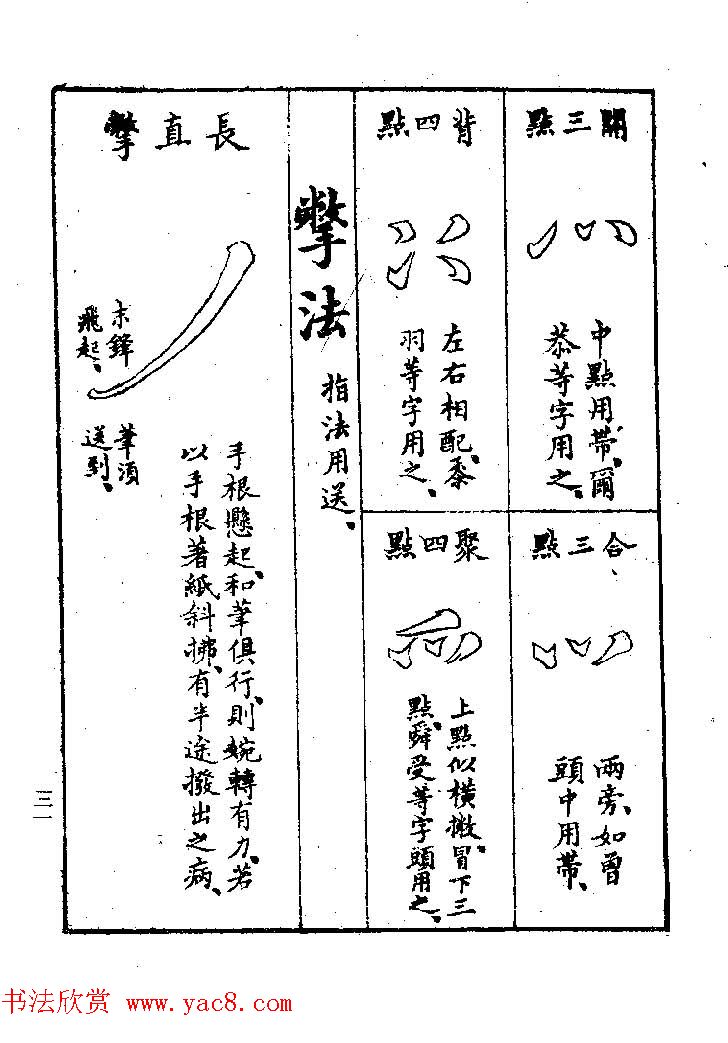 開三點
中點用帶、爾
恭等字用之、
合三點
兩旁、如曾
頭中用帶、
背四點
左右相配、黍
羽等字用之、
聚四點
上點似橫撇、冒下三
點、舜受等字頭用之、
撆法
指法用送、
長直撆
手根懸起、和筆俱行、則婉轉有力、若
以手根著紙斜拂、有半途撥出之病、
末鋒
飛起、
筆須
送到、
三一
书法欣赏 www.yac8.com